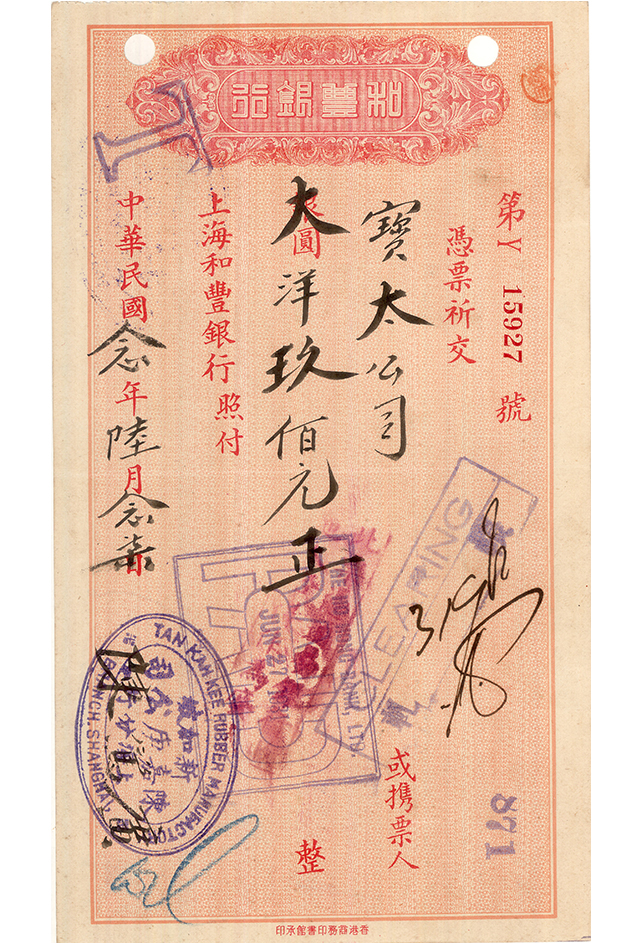 和豐銀行
第Y 15927 號
憑票祈交
寶太公司
或携票人
大圓
洋玖佰元正
整
上海和豐銀行照付
中華民國念年陸月念柒日
CLEARING
JUN 27
LTD.
871
TAN KAH KEE RUBBER MANUFACTO
BRANCH. SHANGHAI
新加坡
陳嘉庚公司
香港商務印書館承印